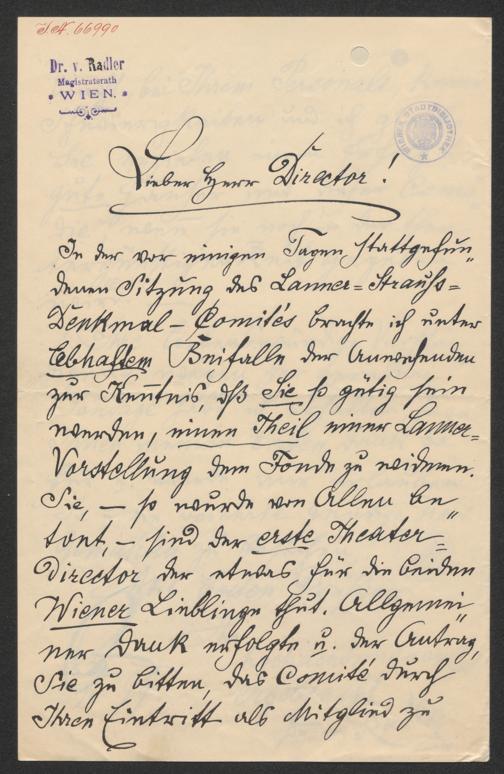 J.N. 66990
Dr. v. Radler
Magistratsrath
* WIEN. *
WIENER STADTBIBLIOTHEK
Lieber Herr Director!
In der vor einigen Tagen stattgefun„
denen Sitzung des Lanner=Strauss=
Denkmal-Comités brachte ich unter
lebhaftem Beifalle der Anwesenden
zur Kenntnis, dß Sie so gütig sein
werden, einen Theil einer Lanner=
Vorstellung dem Fonde zu widmen.
Sie, – so wurde von Allen be„
tont, – sind der erste Theater=
Director der etwas für die beiden
Wiener Lieblinge thut. Allgemei„
ner Dank erfolgte u. der Antrag,
Sie zu bitten, das Comité durch
Ihren Eintritt als Mitglied zu